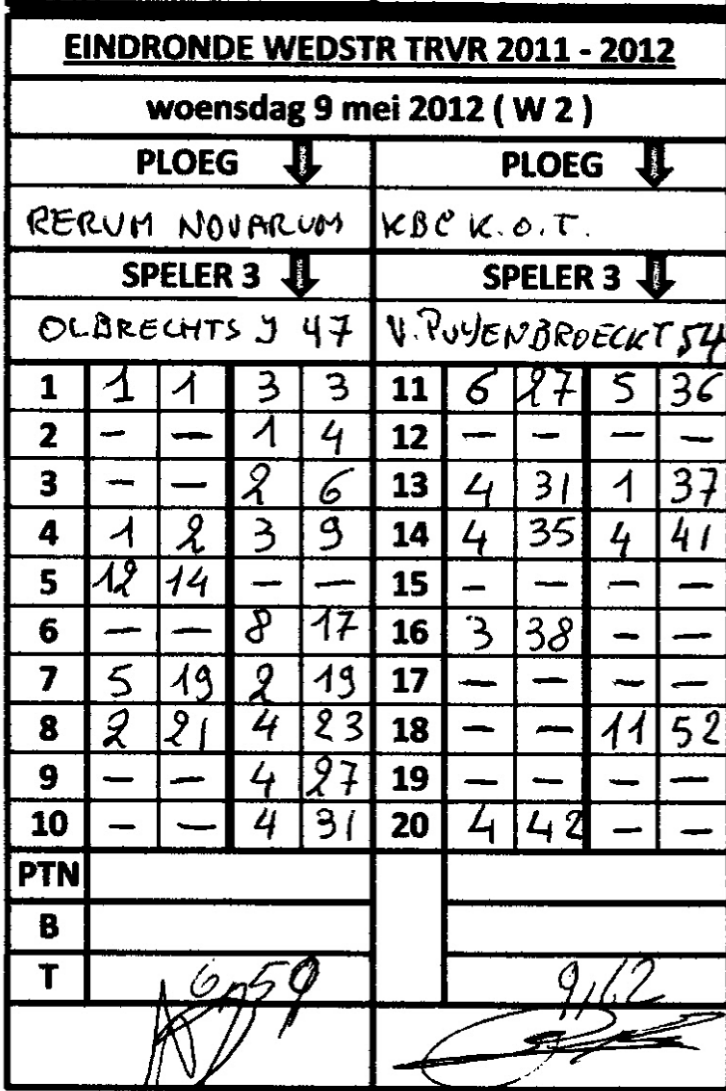 EINDRONDE WEDSTR TRVR 2011 - 2012
woensdag 9 mei 2012 ( W 2 )
PLOEG PLOEG
RERUM NOVARUM KBC K.O.T.
SPELER 3 SPELER 3
OLBRECHTS J 47 V. PUYENBROECKT 54
1 1 1 3 3 11 6 27 5 36
2 — — 1 4 12 — — — —
3 — — 2 6 13 4 31 1 37
4 1 2 3 9 14 4 35 4 41
5 12 14 — — 15 — — — —
6 — — 8 17 16 3 38 — —
7 5 19 2 19 17 — — — —
8 2 21 4 23 18 — — 11 52
9 — — 4 27 19 — — — —
10 — — 4 31 20 4 42 — —
PTN
B
T 9,62